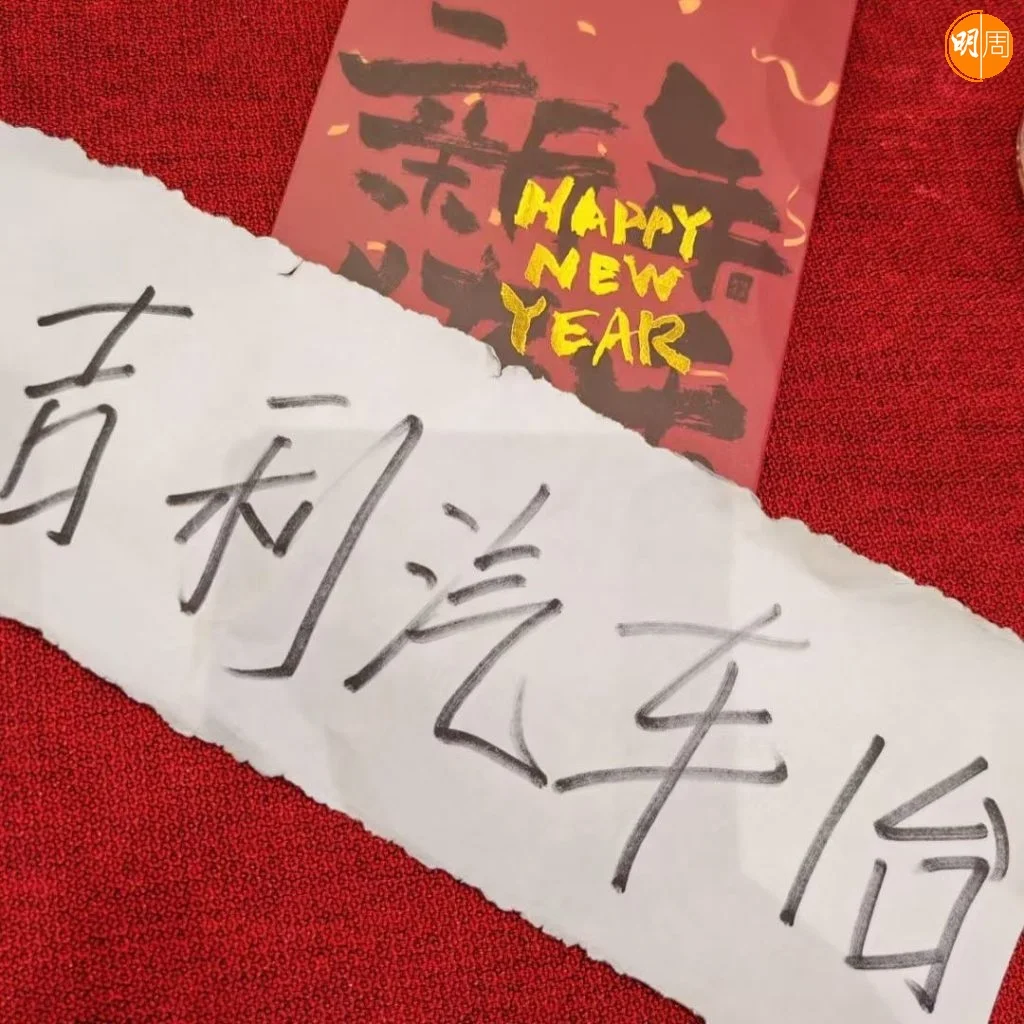 明周
新年
HAPPY
NEW
YEAR
吉利汽车1台